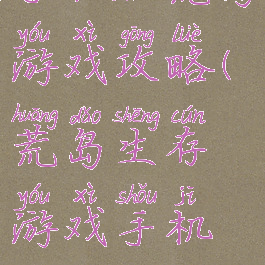 yóu xì gōng lüè
游戏攻略(
huāng dǎo shēng cún
荒岛生存
yóu xì shǒu jī
游戏手机